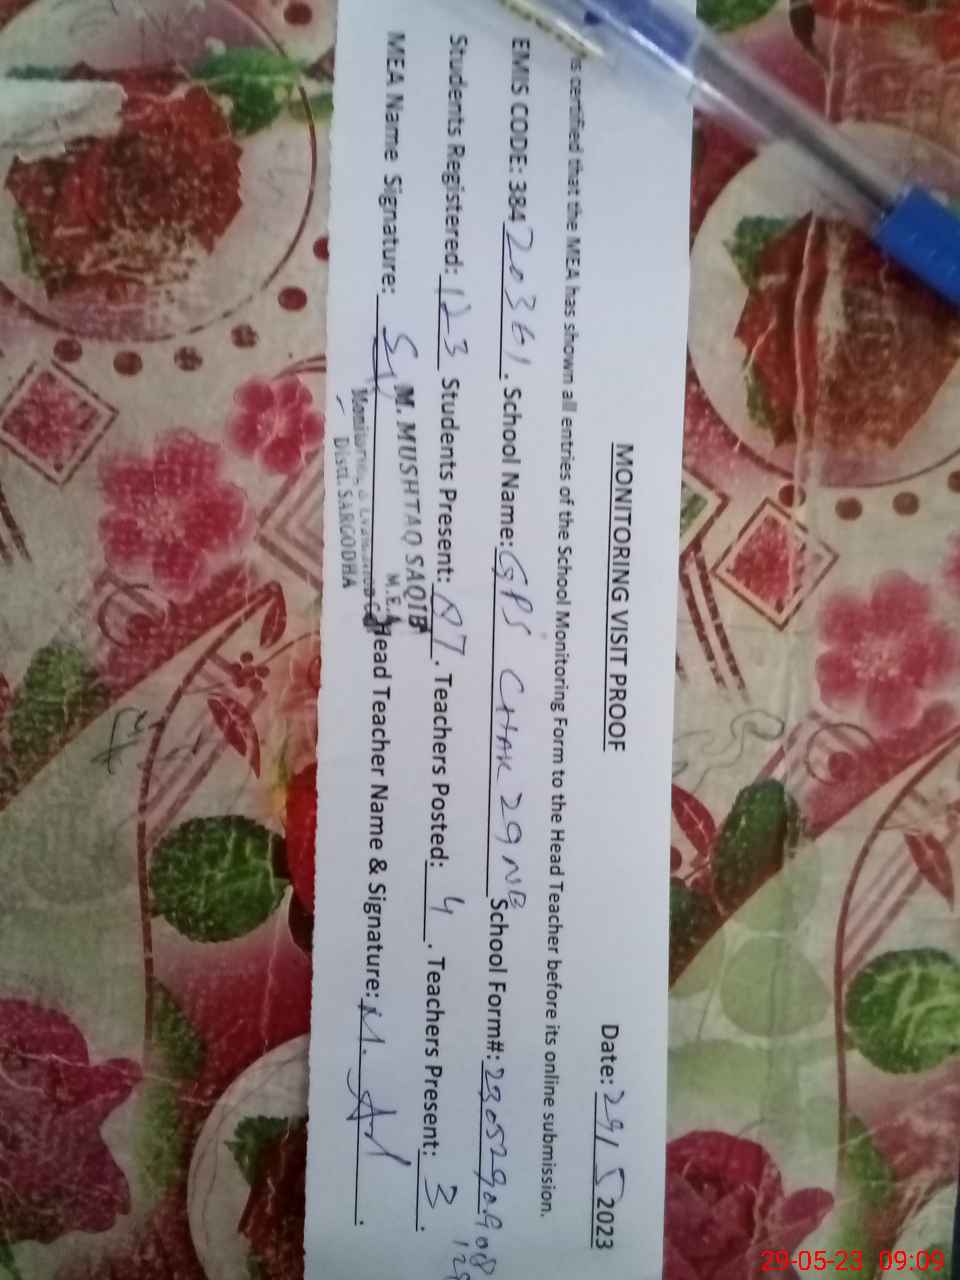 MONITORING VISIT PROOF
Date: 29/5 2023
is certified that the MEA has shown all entries of the School Monitoring Form to the Head Teacher before its online submission.
EMIS CODE: 38420361. School Name: GPS CHAK 29 NB School Form#: 2305290908
129
Students Registered: 123 Students Present: 87. Teachers Posted: 4. Teachers Present: 3.
M. MUSHTAQ SAQIB
M.E.A
MEA Name Signature: Head Teacher Name & Signature: M.
Monitoring & Evaluation
Distt. SARGODHA
29-05-23 09:09